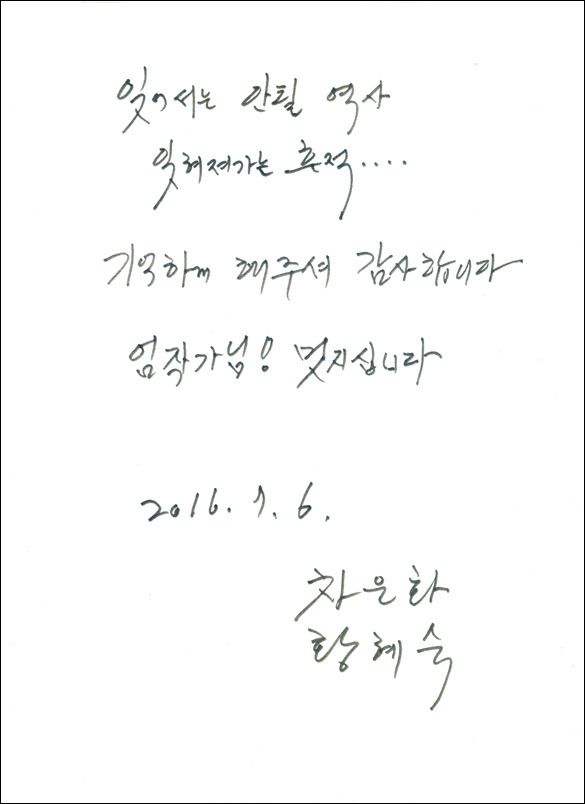 잊어서는 안될 역사
잊혀져가는 흔적....
기억하게 해주셔 감사합니다
엄작가님! 멋지십니다
2016. 7. 6.
차은화
황혜숙